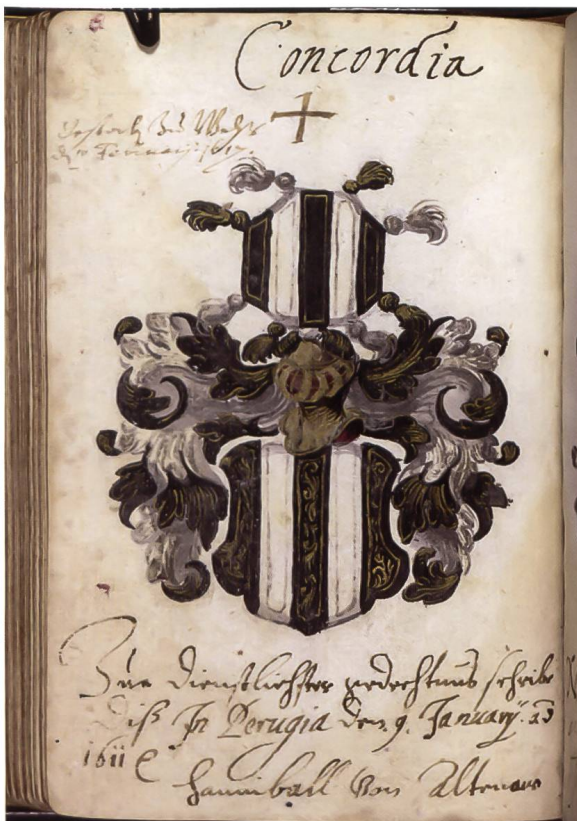 Concordia
Januarij 1617.
Zur dienstlichster gedechtnus schribe
diß In Perugia den 9. January. aõ
1611
Hanniball von Altenaw